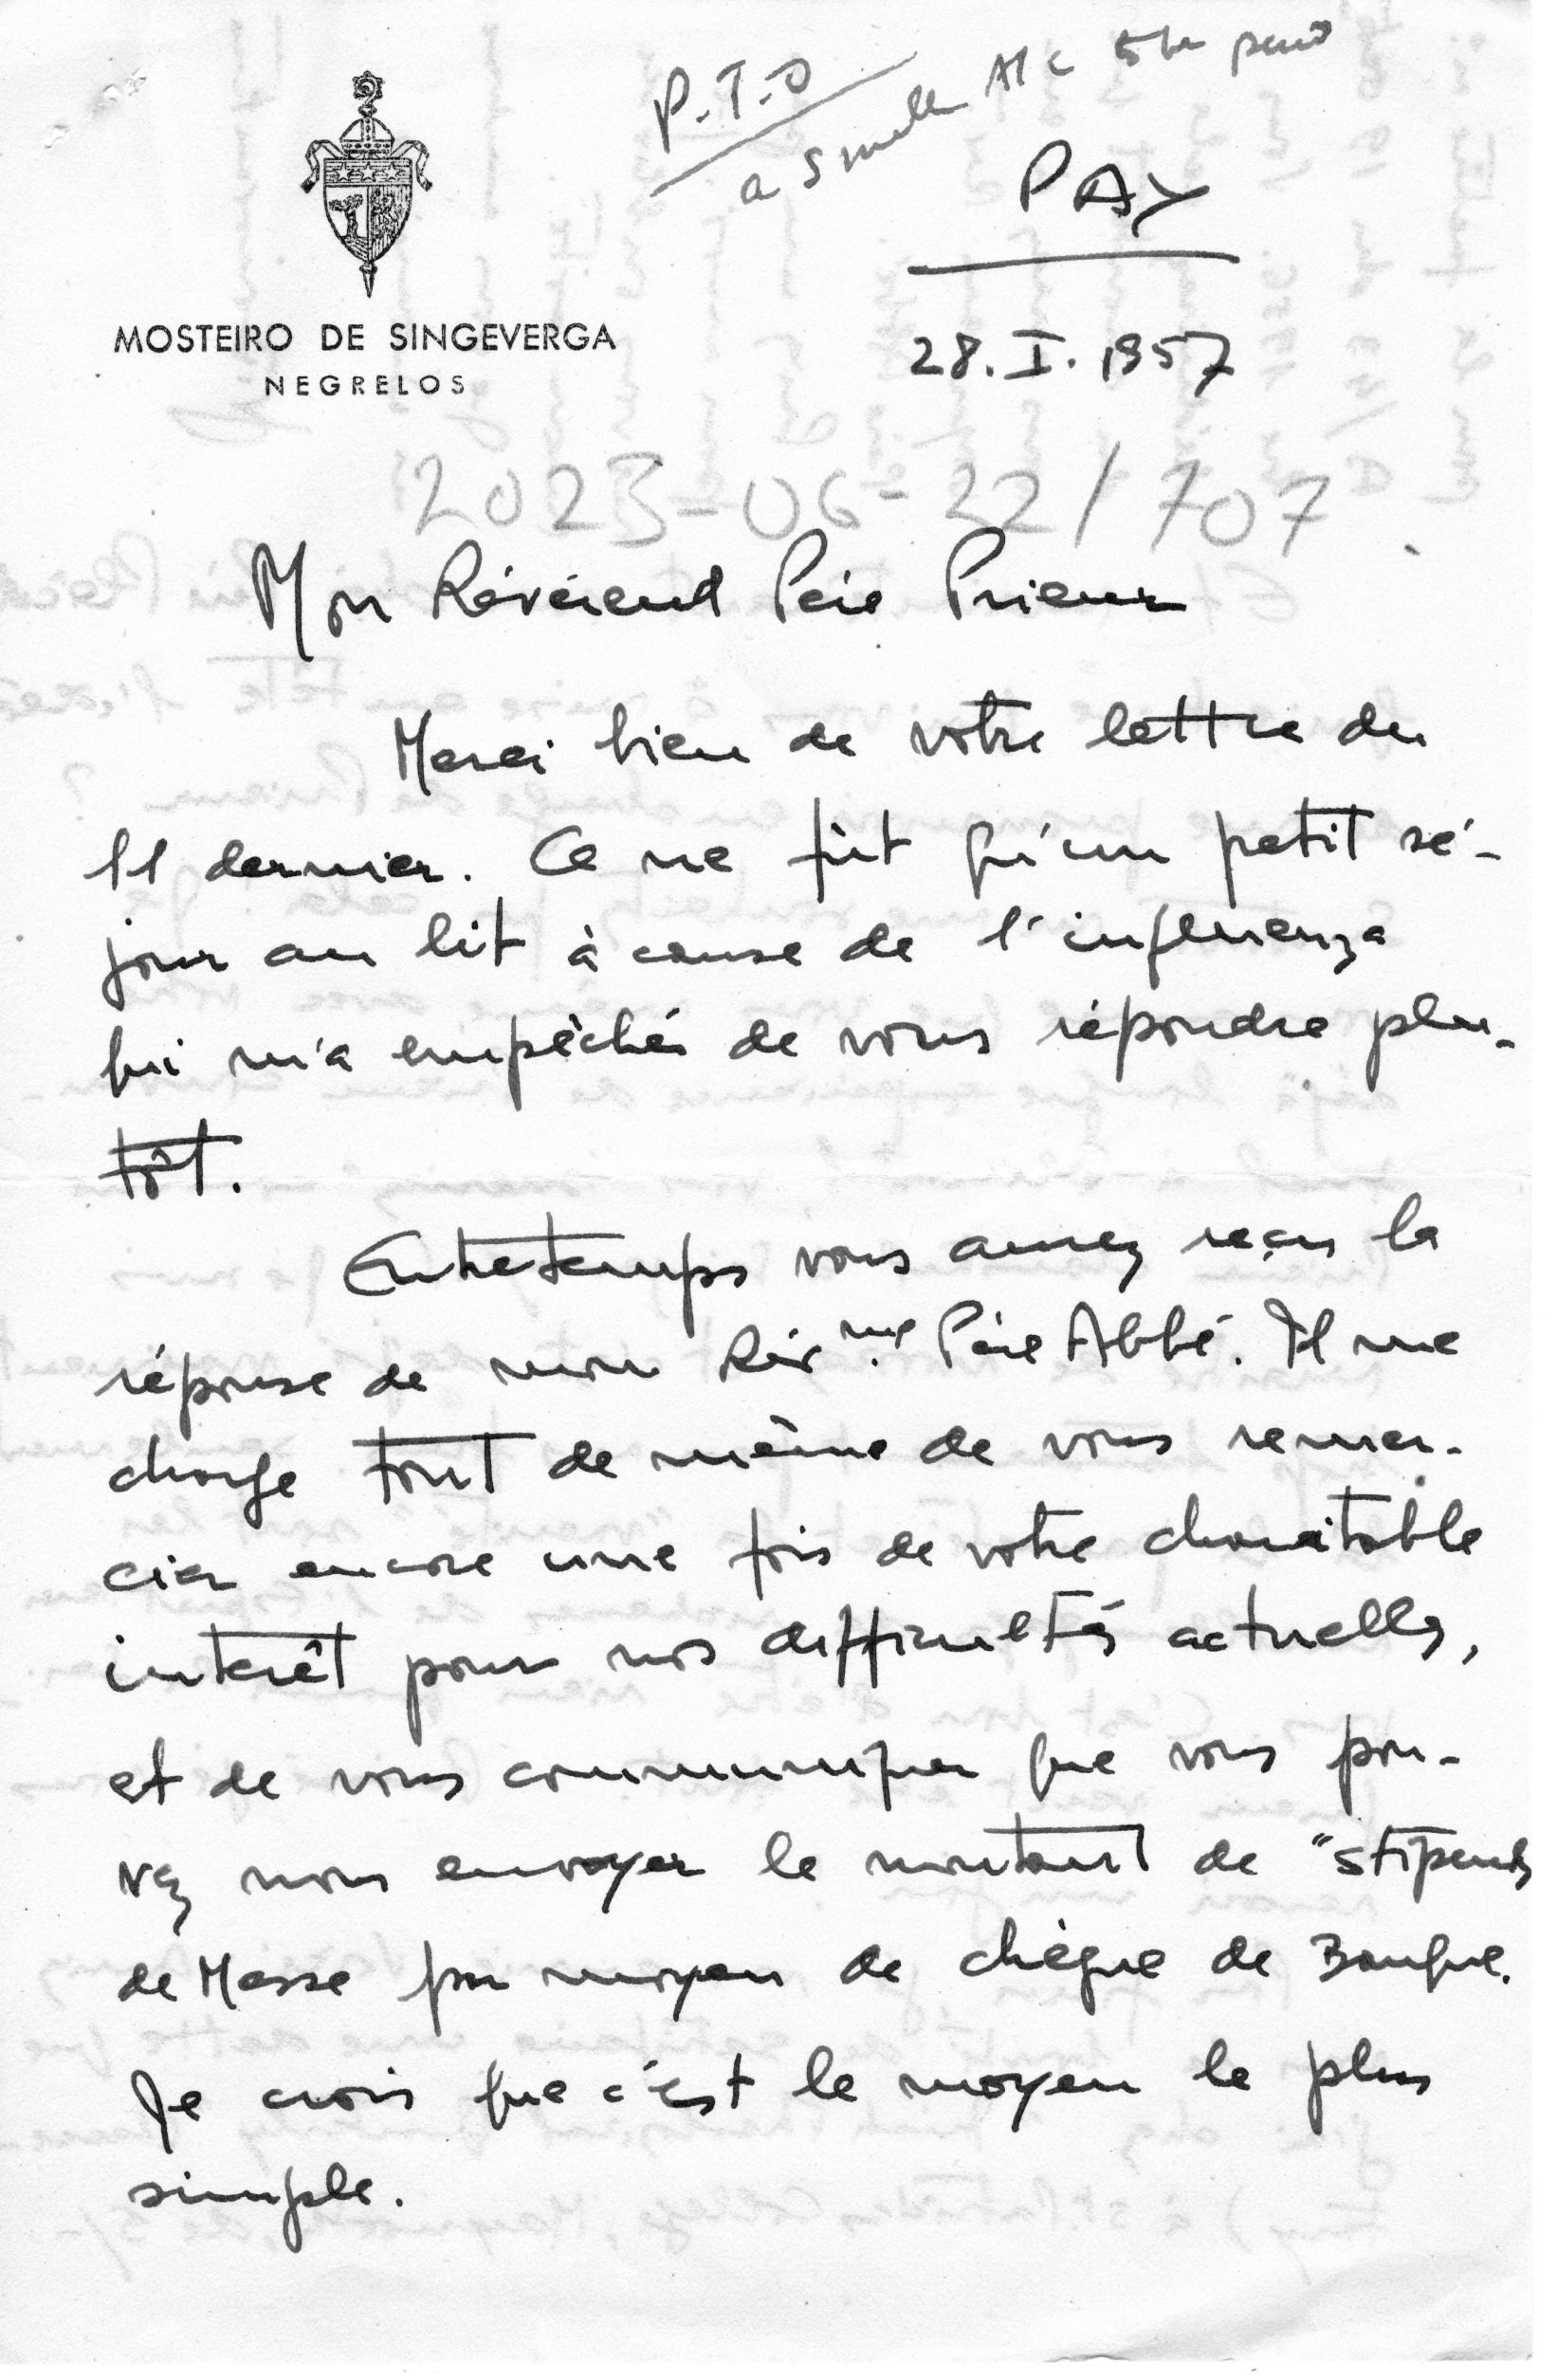 P.T.O
a small A/c 5/- paid
PAY
MOSTEIRO DE SINGEVERGA
NEGRELOS
28.I.1957
2023-06-22/707
Mon Révérend Père Prieur
Merci bien de votre lettre du
11 dernier. Ce ne fût qu'un petit sé-
jour au lit à cause de l'influenza
qui m'a empêché de vous répondre plu-
tôt.
Entretemps vous aurez reçu la
réponse de mon Rév.me Père Abbé. Il me
charge tout de même de vous remer-
cier encore une fois de votre charitable
interêt pour nos difficultés actuelles,
et de vous communiquer que vous pou-
vez nous envoyer le montant de "stipends
de Messe par moyen de chèque de Banque.
Je crois que c'est le moyen le plus
simple.